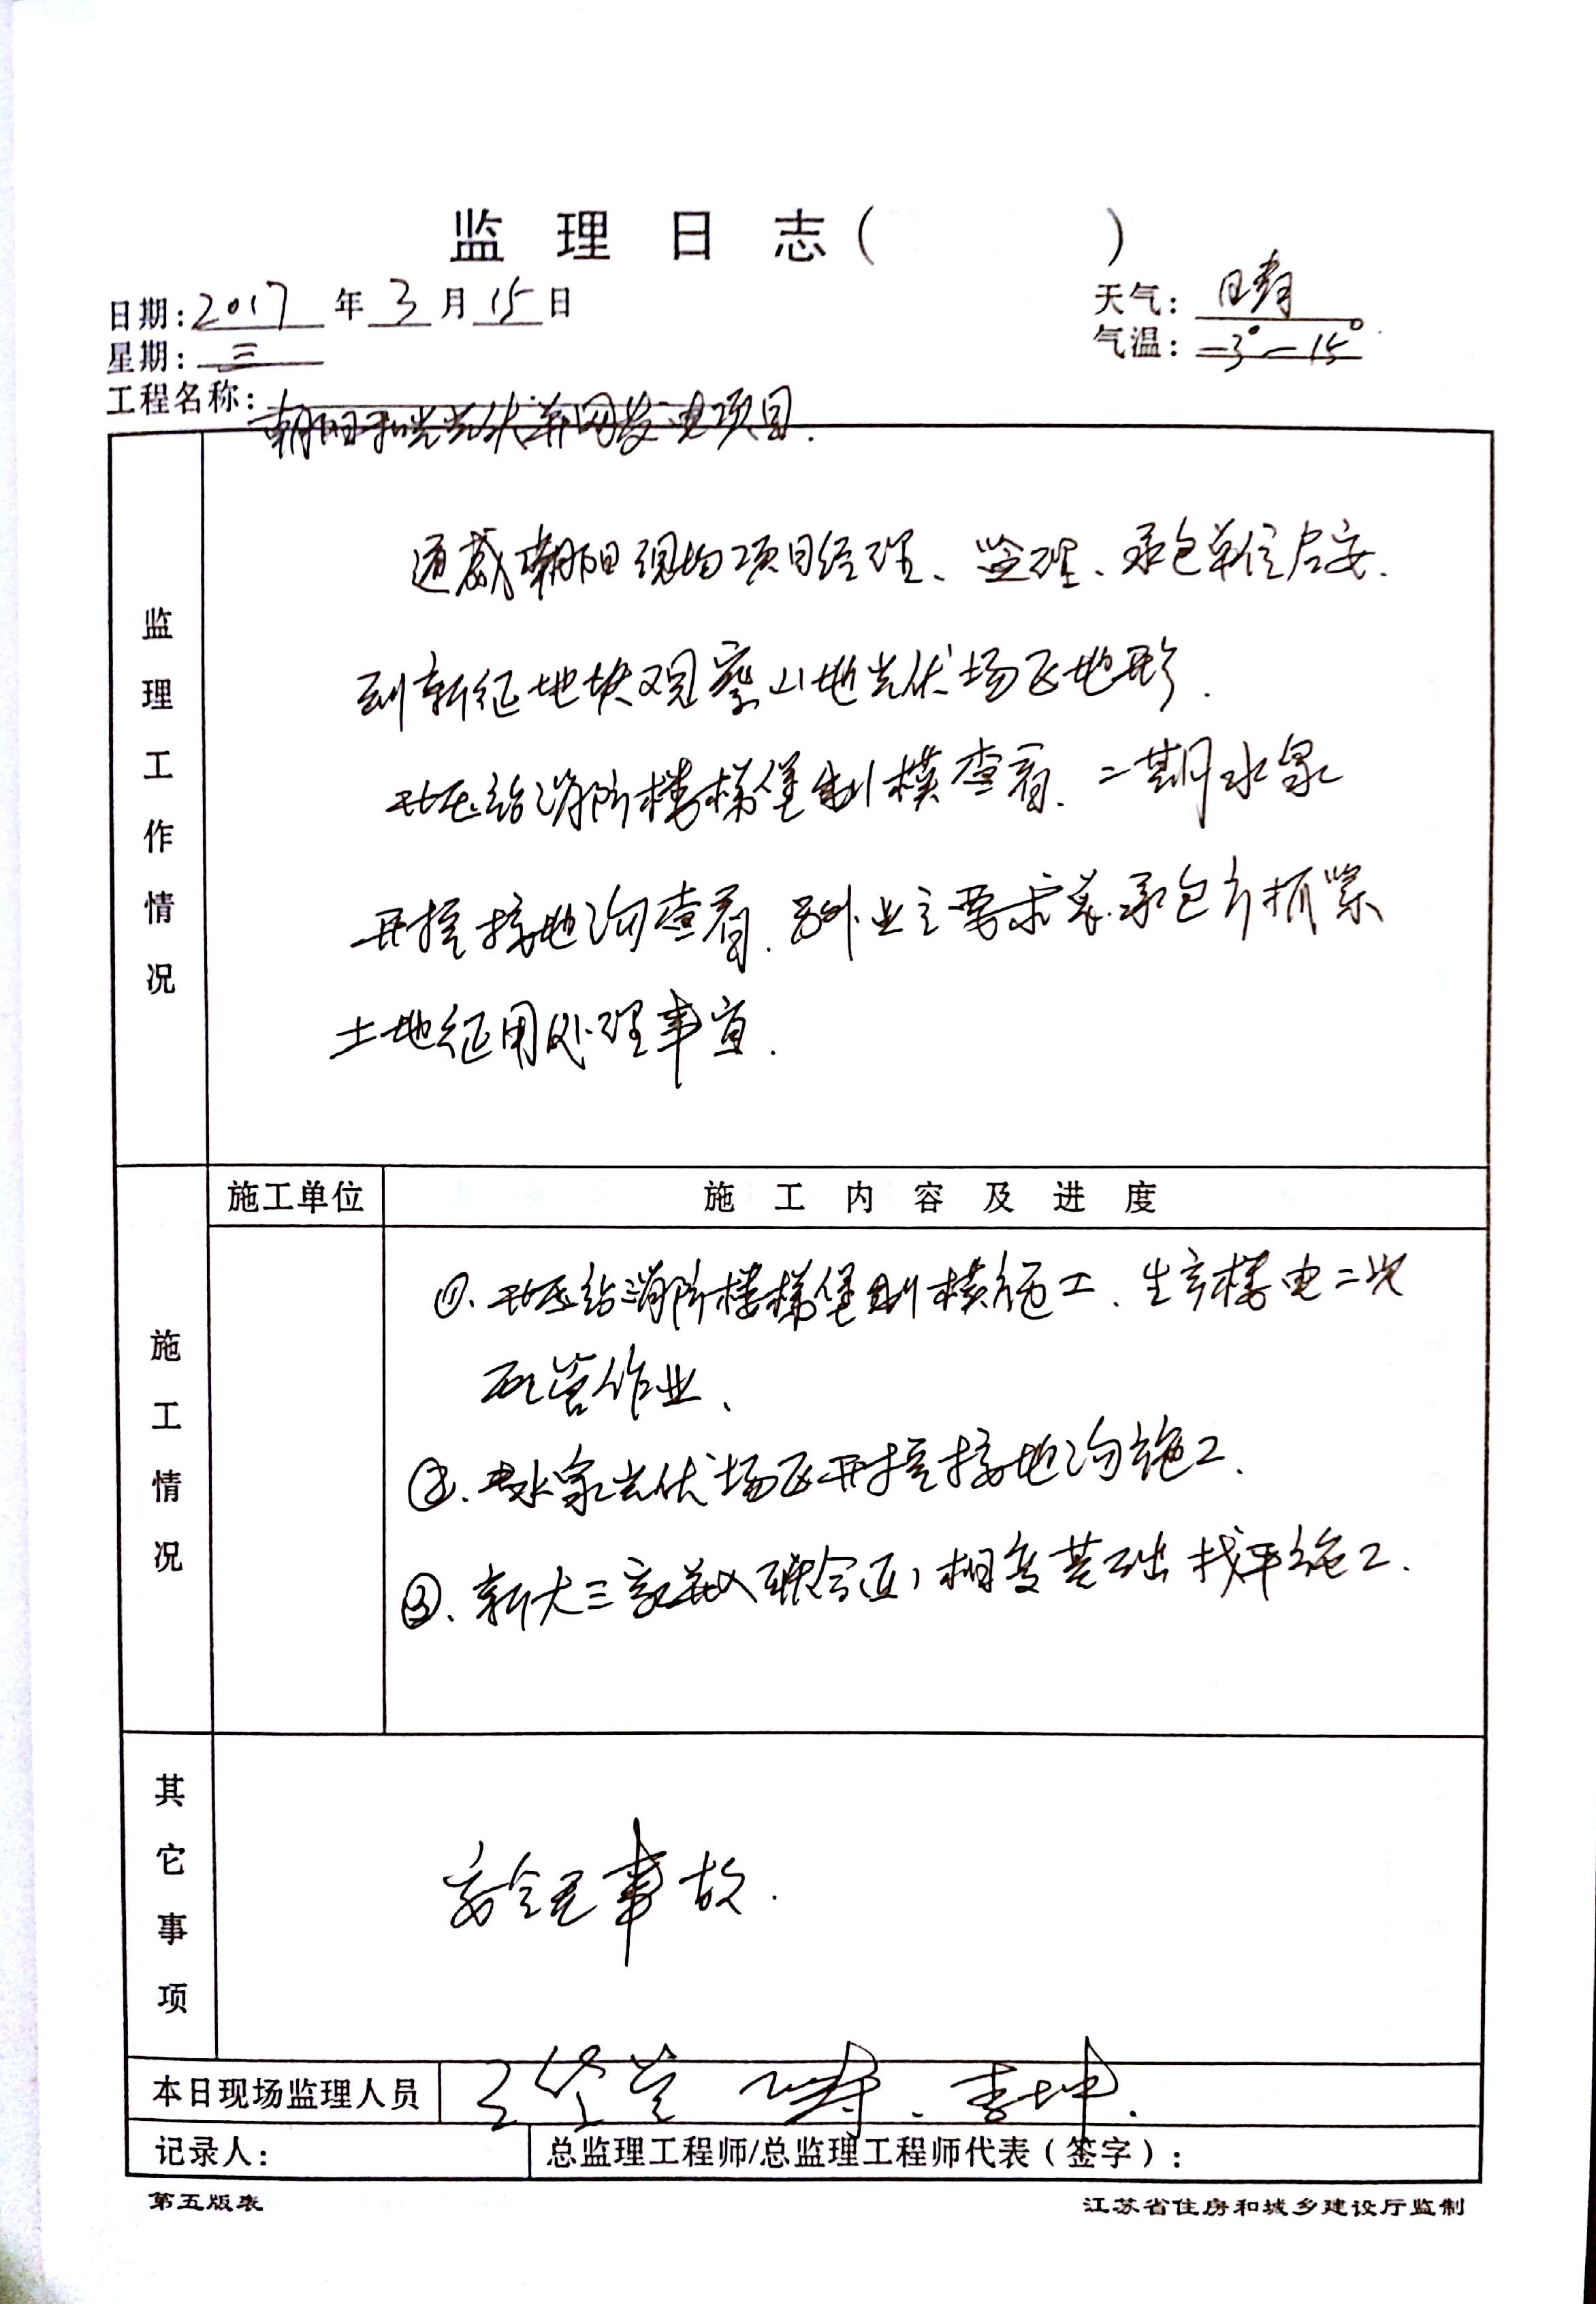 监理日志(          )
日期:2017年3月15日
天气:晴
星期:三
气温:-3°-15°
工程名称:朝阳和光光伏并网发电项目.
监理工作情况
通威朝阳现场项目经理、监理、承包单位
到新征地块观察山地光伏场区地形.
开压站消防楼梯堡制模查看.二期水泉
开挖接地沟查看.另外业主要求 承包方抓紧
土地征用处理事宜.
施工单位
施工内容及进度
施工情况
①.开压站消防楼梯堡制模施工、生产楼电二次
配管作业、
②.水泉光伏场区开挖接地沟施工.
③.新大三家 箱变基础找平施工.
其它事项
安全无事故.
本日现场监理人员 李坤.
记录人:
总监理工程师/总监理工程师代表(签字):
第五版表
江苏省住房和城乡建设厅监制